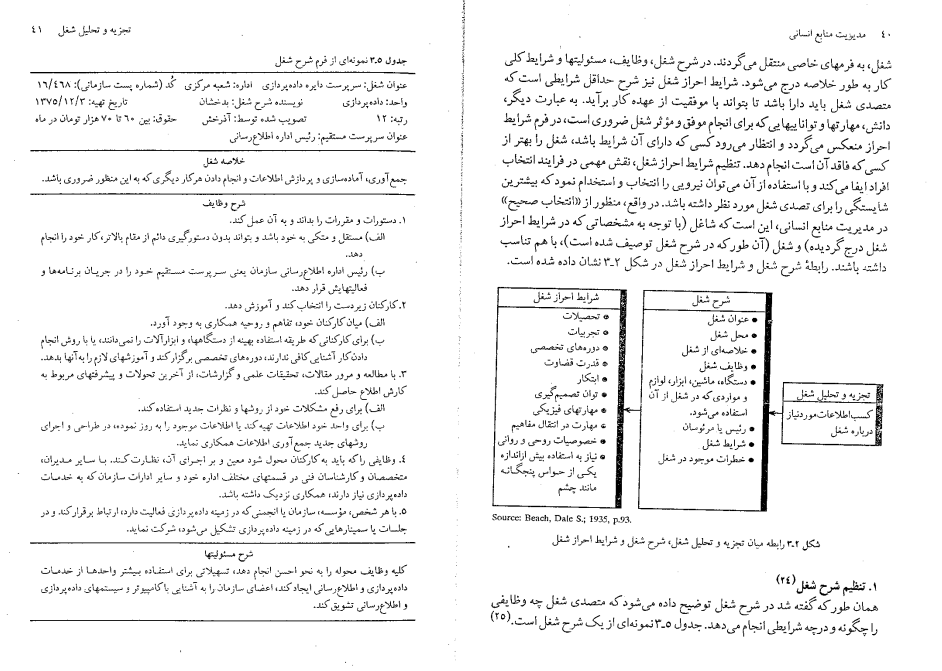 ۴۰ مدیریت منابع انسانی
شغل، به فرمهای خاصی منتقل می‌گردند. در شرح شغل، وظایف، مسئولیتها و شرایط کلی
کار به طور خلاصه درج می‌شود. شرایط احراز شغل نیز شرح حداقل شرایطی است که
متصدی شغل باید دارا باشد تا بتواند با موفقیت از عهده کار برآید. به عبارت دیگر،
دانش، مهارتها و تواناییهایی که برای انجام موفق و مؤثر شغل ضروری است، در فرم شرایط
احراز منعکس می‌گردد و انتظار می‌رود کسی که دارای آن شرایط باشد، شغل را بهتر از
کسی که فاقد آن است انجام دهد. تنظیم شرایط احراز شغل، نقش مهمی در فرایند انتخاب
افراد ایفا می‌کند و با استفاده از آن می‌توان نیرویی را انتخاب و استخدام نمود که بیشترین
شایستگی را برای تصدی شغل مورد نظر داشته باشد. در واقع، منظور از «انتخاب صحیح»
در مدیریت منابع انسانی، این است که شاغل (با توجه به مشخصاتی که در شرایط احراز
شغل درج گردیده) و شغل (آن طور که در شرح شغل توصیف شده است)، با هم تناسب
داشته باشند. رابطهٔ شرح شغل و شرایط احراز شغل در شکل ۲ـ۳ نشان داده شده است.
تجزیه و تحلیل شغل
کسب اطلاعات مورد نیاز
درباره شغل
شرح شغل
• عنوان شغل
• محل شغل
• خلاصه‌ای از شغل
• وظایف شغل
• دستگاه، ماشین، ابزار، لوازم
و مواردی که در شغل از آن
استفاده می‌شود.
• رئیس یا مرئوسان
• شرایط شغل
• خطرات موجود در شغل
شرایط احراز شغل
• تحصیلات
• تجربیات
• دوره‌های تخصصی
• قدرت قضاوت
• ابتکار
• توان تصمیم‌گیری
• مهارتهای فیزیکی
• مهارت در انتقال مفاهیم
• خصوصیات روحی و روانی
• نیاز به استفاده بیش از اندازه
یکی از حواس پنجگانه
مانند چشم
Source: Beach, Dale S.; 1935, p.93.
شکل ۲ـ۳ رابطه میان تجزیه و تحلیل شغل، شرح شغل و شرایط احراز شغل
۱. تنظیم شرح شغل (۲۴)
همان طور که گفته شد در شرح شغل توضیح داده می‌شود که متصدی شغل چه وظایفی
را چگونه و در چه شرایطی انجام می‌دهد. جدول ۵ـ۳ نمونه‌ای از یک شرح شغل است. (۲۵)
تجزیه و تحلیل شغل ۴۱
جدول ۵ـ۳ نمونه‌ای از فرم شرح شغل
عنوان شغل: سرپرست دایره داده‌پردازی اداره: شعبه مرکزی کُد (شماره پست سازمانی): ۱۶/۴۶۸
واحد: داده‌پردازی نویسنده شرح شغل: بدخشان تاریخ تهیه: ۱۳۷۵/۱۲/۳
رتبه: ۱۲ تصویب شده توسط: آفرخش حقوق: بین ۶۰ تا ۷۰ هزار تومان در ماه
عنوان سرپرست مستقیم: رئیس اداره اطلاع‌رسانی
خلاصه شغل
جمع‌آوری، آماده‌سازی و پردازش اطلاعات و انجام دادن هر کار دیگری که به این منظور ضروری باشد.
شرح وظایف
۱. دستورات و مقررات را بداند و به آن عمل کند.
الف) مستقل و متکی به خود باشد و بتواند بدون دستورگیری دائم از مقام بالاتر، کار خود را انجام
دهد.
ب) رئیس اداره اطلاع‌رسانی سازمان یعنی سرپرست مستقیم خود را در جریان برنامه‌ها و
فعالیتهایش قرار دهد.
۲. کارکنان زیردست را انتخاب کند و آموزش دهد.
الف) میان کارکنان خود، تفاهم و روحیه همکاری به وجود آورد.
ب) برای کارکنانی که طریقه استفاده بهینه از دستگاهها، و ابزارآلات را نمی‌دانند، یا با روش انجام
دادن کار آشنایی کافی ندارند، دوره‌های تخصصی برگزار کند و آموزشهای لازم را به آنها بدهد.
۳. با مطالعه و مرور مقالات، تحقیقات علمی و گزارشات، از آخرین تحولات و پیشرفتهای مربوط به
کارش اطلاع حاصل کند.
الف) برای رفع مشکلات خود از روشها و نظرات جدید استفاده کند.
ب) برای واحد خود اطلاعات تهیه کند یا اطلاعات موجود را به روز نموده، در طراحی و اجرای
روشهای جدید جمع‌آوری اطلاعات همکاری نماید.
۴. وظایفی را که باید به کارکنان محول شود معین و بر اجرای آن، نظارت کند. با سایر مدیران،
متخصصان و کارشناسان فنی در قسمتهای مختلف اداره خود و سایر ادارات سازمان که به خدمات
داده‌پردازی نیاز دارند، همکاری نزدیک داشته باشد.
۵. با هر شخص، مؤسسه، سازمان یا انجمنی که در زمینه داده‌پردازی فعالیت دارد، ارتباط برقرار کند و در
جلسات یا سمینارهایی که در زمینه داده‌پردازی تشکیل می‌شود، شرکت نماید.
شرح مسئولیتها
کلیه وظایف محوله را به نحو احسن انجام دهد، تسهیلاتی برای استفاده بیشتر واحدها از خدمات
داده‌پردازی و اطلاع‌رسانی ایجاد کند، اعضای سازمان را به آشنایی با کامپیوتر و سیستمهای داده‌پردازی
و اطلاع‌رسانی تشویق کند.